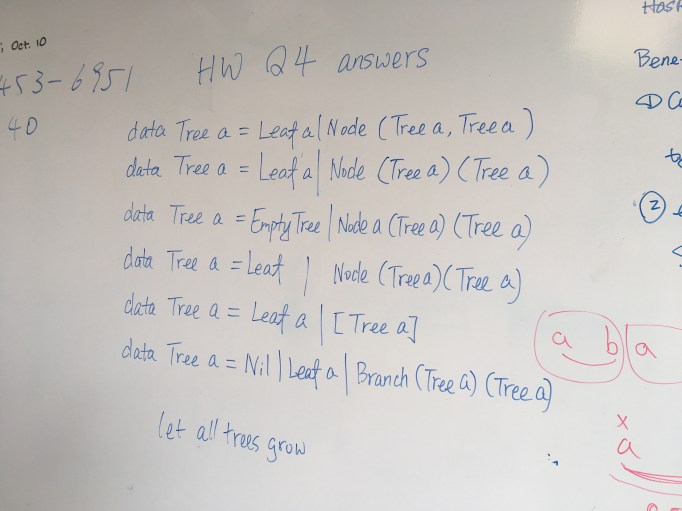 Oct. 10
453-6951
40
HW Q4 answers
data Tree a = Leaf a | Node (Tree a, Tree a)
data Tree a = Leaf a | Node (Tree a) (Tree a)
data Tree a = EmptyTree | Node a (Tree a) (Tree a)
data Tree a = Leaf | Node (Tree a) (Tree a)
data Tree a = Leaf a | [Tree a]
data Tree a = Nil | Leaf a | Branch (Tree a) (Tree a)
let all trees grow
Bene
①
②
a b a
x
a